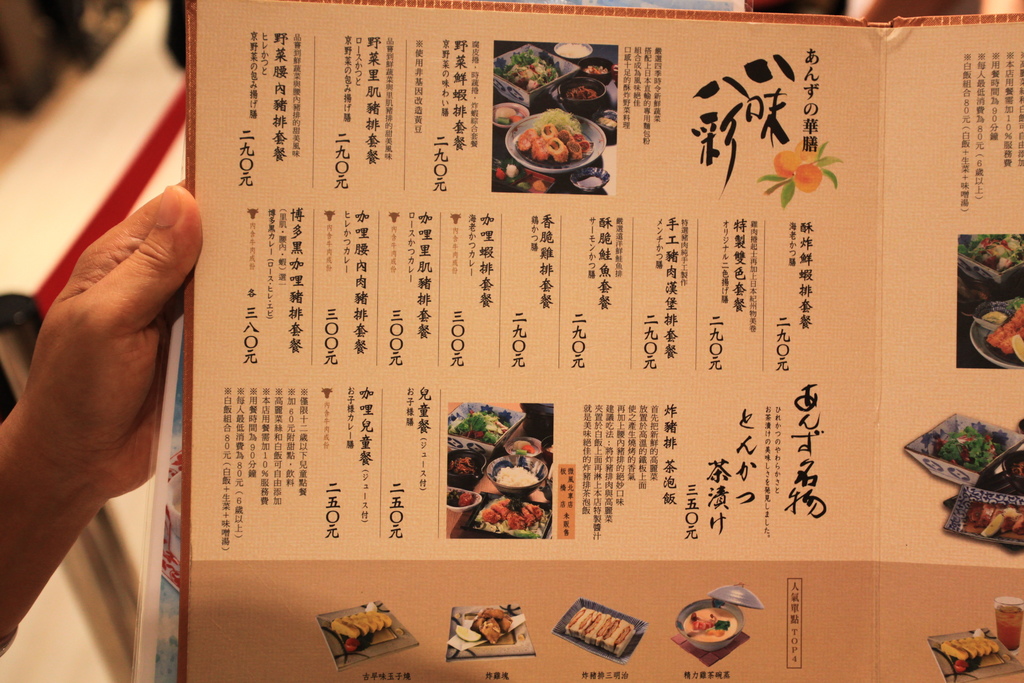 あんずの華膳
八味八彩
嚴選四季時令新鮮蔬菜
搭配上日本直輸的專用麵包粉
組合成為風味絕佳
口感十足的酥炸野菜料理
腐皮捲、時蔬捲、炸蝦綜合套餐
野菜鮮蝦排套餐
京野菜の味わい膳
二九〇元
※使用非基因改造黃豆
品嘗到鮮蔬菜與里肌豬排的甜美風味
野菜里肌豬排套餐
ロースかつと
京野菜の包み揚げ膳
二九〇元
品嘗到鮮蔬菜與腰內豬排的甜美風味
野菜腰內豬排套餐
ヒレかつと
京野菜の包み揚げ膳
二九〇元
酥炸鮮蝦排套餐
海老かつ膳
二九〇元
雞肉捲起士再加上日本紀州物美卷
特製雙色套餐
オリジナル二色揚げ膳
二九〇元
特選豬肉純手工製作
手工豬肉漢堡排套餐
メンチかつ膳
二九〇元
嚴選遠洋鮮鮭魚排
酥脆鮭魚套餐
サーモンかつ膳
二九〇元
香脆雞排套餐
鶏かつ膳
二九〇元
咖哩蝦排套餐
海老かつカレー
內含牛肉成份
三〇〇元
咖哩里肌豬排套餐
ロースかつカレー
內含牛肉成份
三〇〇元
咖哩腰內肉豬排套餐
ヒレかつカレー
內含牛肉成份
三〇〇元
博多黑咖哩豬排套餐
(里肌・腰內・蝦)選一
博多黒カレー(ロース・ヒレ・エビ)
內含牛肉成份
各 三八〇元
あんず名物
ひれかつのやわらかさと
お茶漬けの美味しさを発見しました。
とんかつ
茶漬け
三五〇元
炸豬排 茶泡飯
首先把新鮮的高麗菜
放置於高溫的鐵板上面
使之產生燒烤的香氣
再加上腰內豬排的絕妙口味
建議吃法:將炸豬排肉與高麗菜
夾置於白飯上面再淋上本店特製醬汁
就是美味絕佳的炸豬排茶泡飯
微風北車店
板橋店 未販售
兒童餐(ジュース付)
お子様膳
二五〇元
咖哩兒童餐(ジュース付)
お子様カレー膳
內含牛肉成份
二五〇元
※僅限十二歲以下兒童點餐
※加60元附甜點,飲料
※高麗菜絲和白飯可自由添加
※本店用餐需加10%服務費
※用餐時間為90分鐘
※每人最低消費為80元(6歲以上)
※白飯組合80元(白飯+生菜+味噌湯)
人氣單點 TOP4
精力雞茶碗蒸
炸豬排三明治
炸雞塊
古早味玉子燒
可自由添加
※本店用餐需加10%服務費
※用餐時間為90分鐘
※每人最低消費為80元(6歲以上)
※白飯組合80元(白飯+生菜+味噌湯)